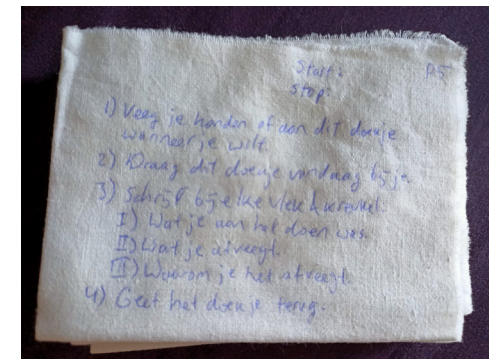 Start: P5
Stop:
1) Veeg je handen af aan dit doekje
wanneer je wilt.
2) Draag dit doekje vandaag bij je
3) Schrijf bij elke vlek & kreukel:
I) Wat je aan het doen was.
II) Wat je afveegt.
III) Waarom je het afveegt.
4) Geef het doekje terug.